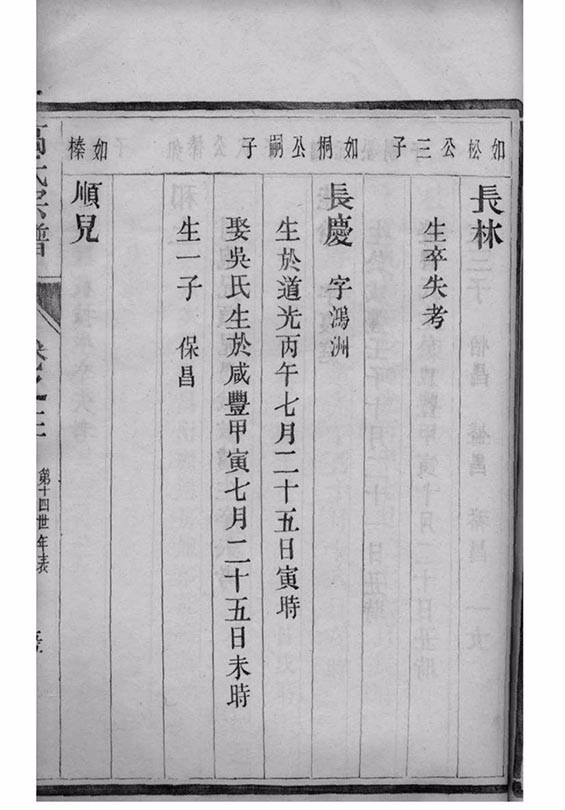 如松公三子
長林
生卒失考
如桐公嗣子
長慶 字鴻洲
生於道光丙午七月二十五日寅時
娶吳氏生於咸豐甲寅七月二十五日未時
生一子 保昌
如榛
順兒
氏宗譜
卷之
第十四世年表